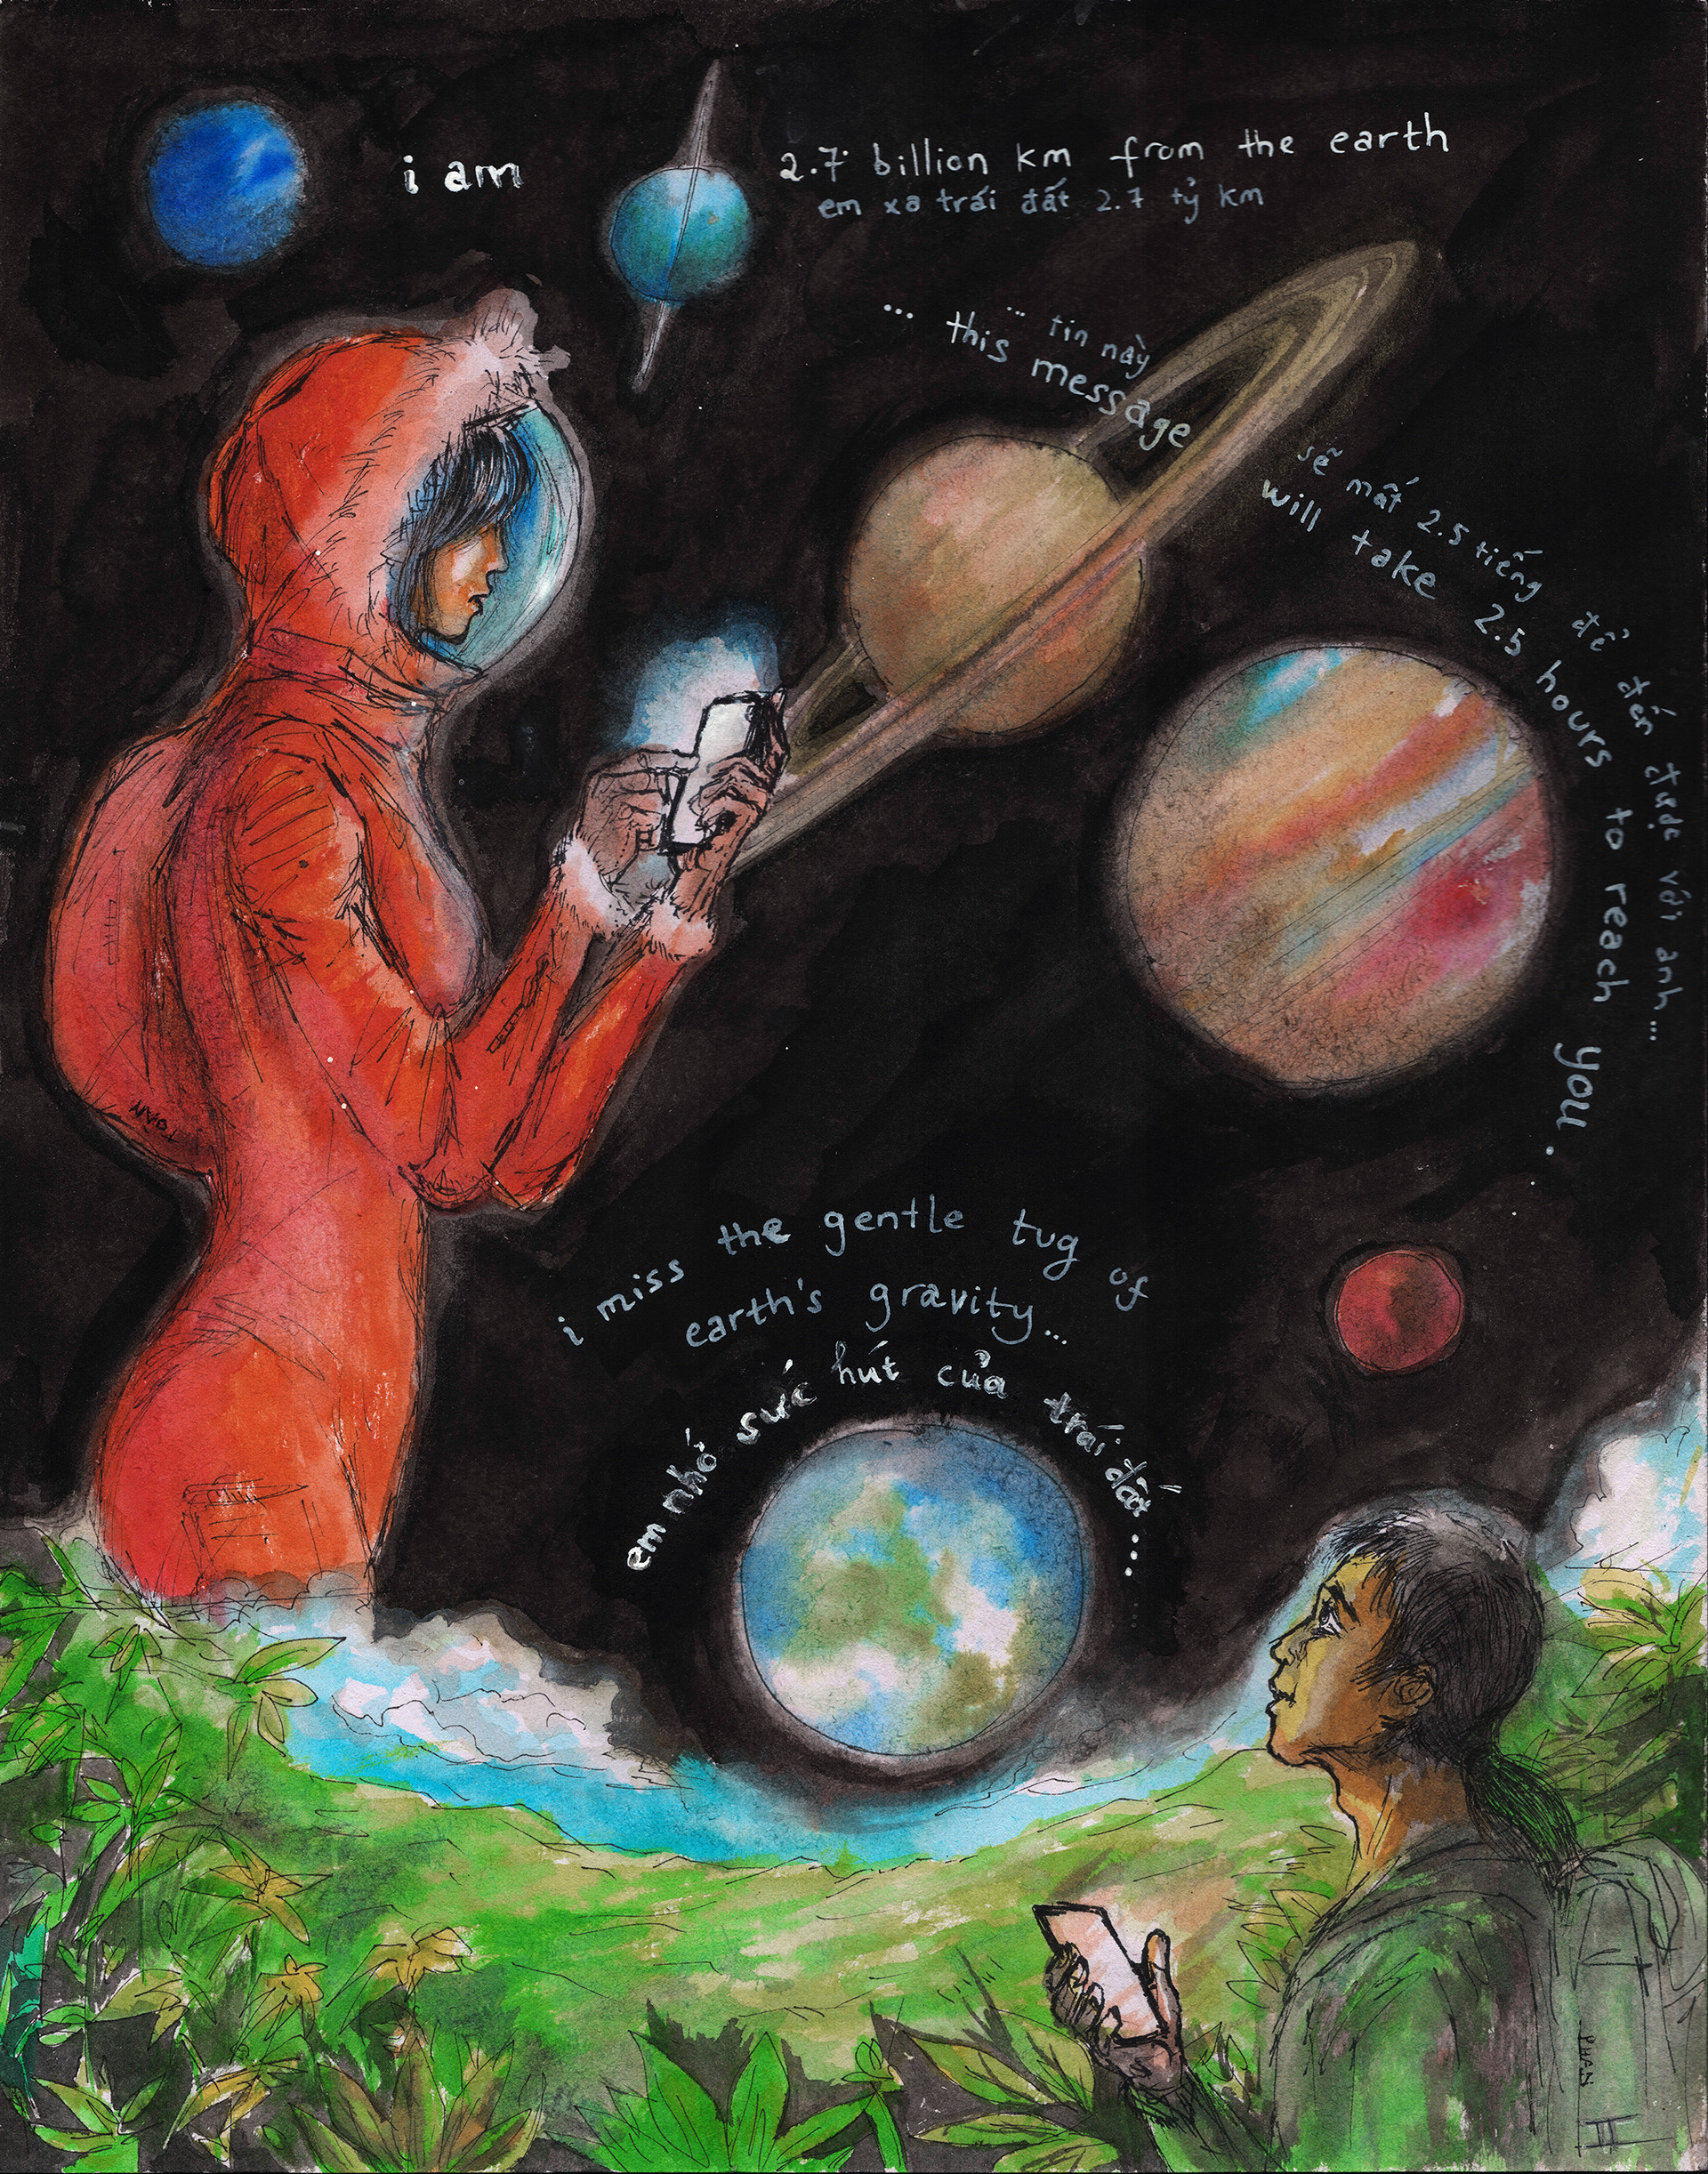 i am
2.7 billion km from the earth
em xa trái đất 2.7 tỷ km
... tin này
... this message
sẽ mất 2.5 tiếng để đến được với anh...
will take 2.5 hours to reach you.
i miss the gentle tug of
earth's gravity...
em nhớ sức hút của trái đất ...
TOAN
PHAN
II